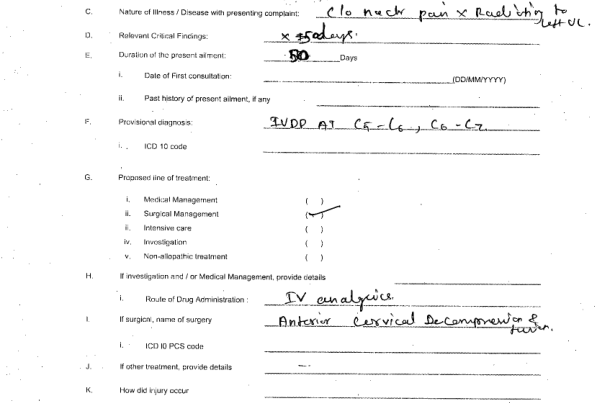 C. Nature of Illness / Disease with presenting complaint: c/o neck pain x Radiating to left UL.
D. Relevant Critical Findings: x 45days.
E. Duration of the present ailment: Days
i. Date of First consultation: (DD/MM/YYYY)
ii. Past history of present ailment, if any
F. Provisional diagnosis: IVDP AT C5-C6, C6-C7.
i. ICD 10 code
G. Proposed line of treatment:
i. Medical Management ( )
ii. Surgical Management (✓)
ii. Intensive care ( )
iv. Investigation ( )
v. Non-allopathic treatment ( )
H. If investigation and / or Medical Management, provide details
i. Route of Drug Administration : IV analgesics.
I. If surgical, name of surgery Anterior Cervical Decompression & fusion.
i. ICD I0 PCS code
J. If other treatment, provide details —
K. How did injury occur